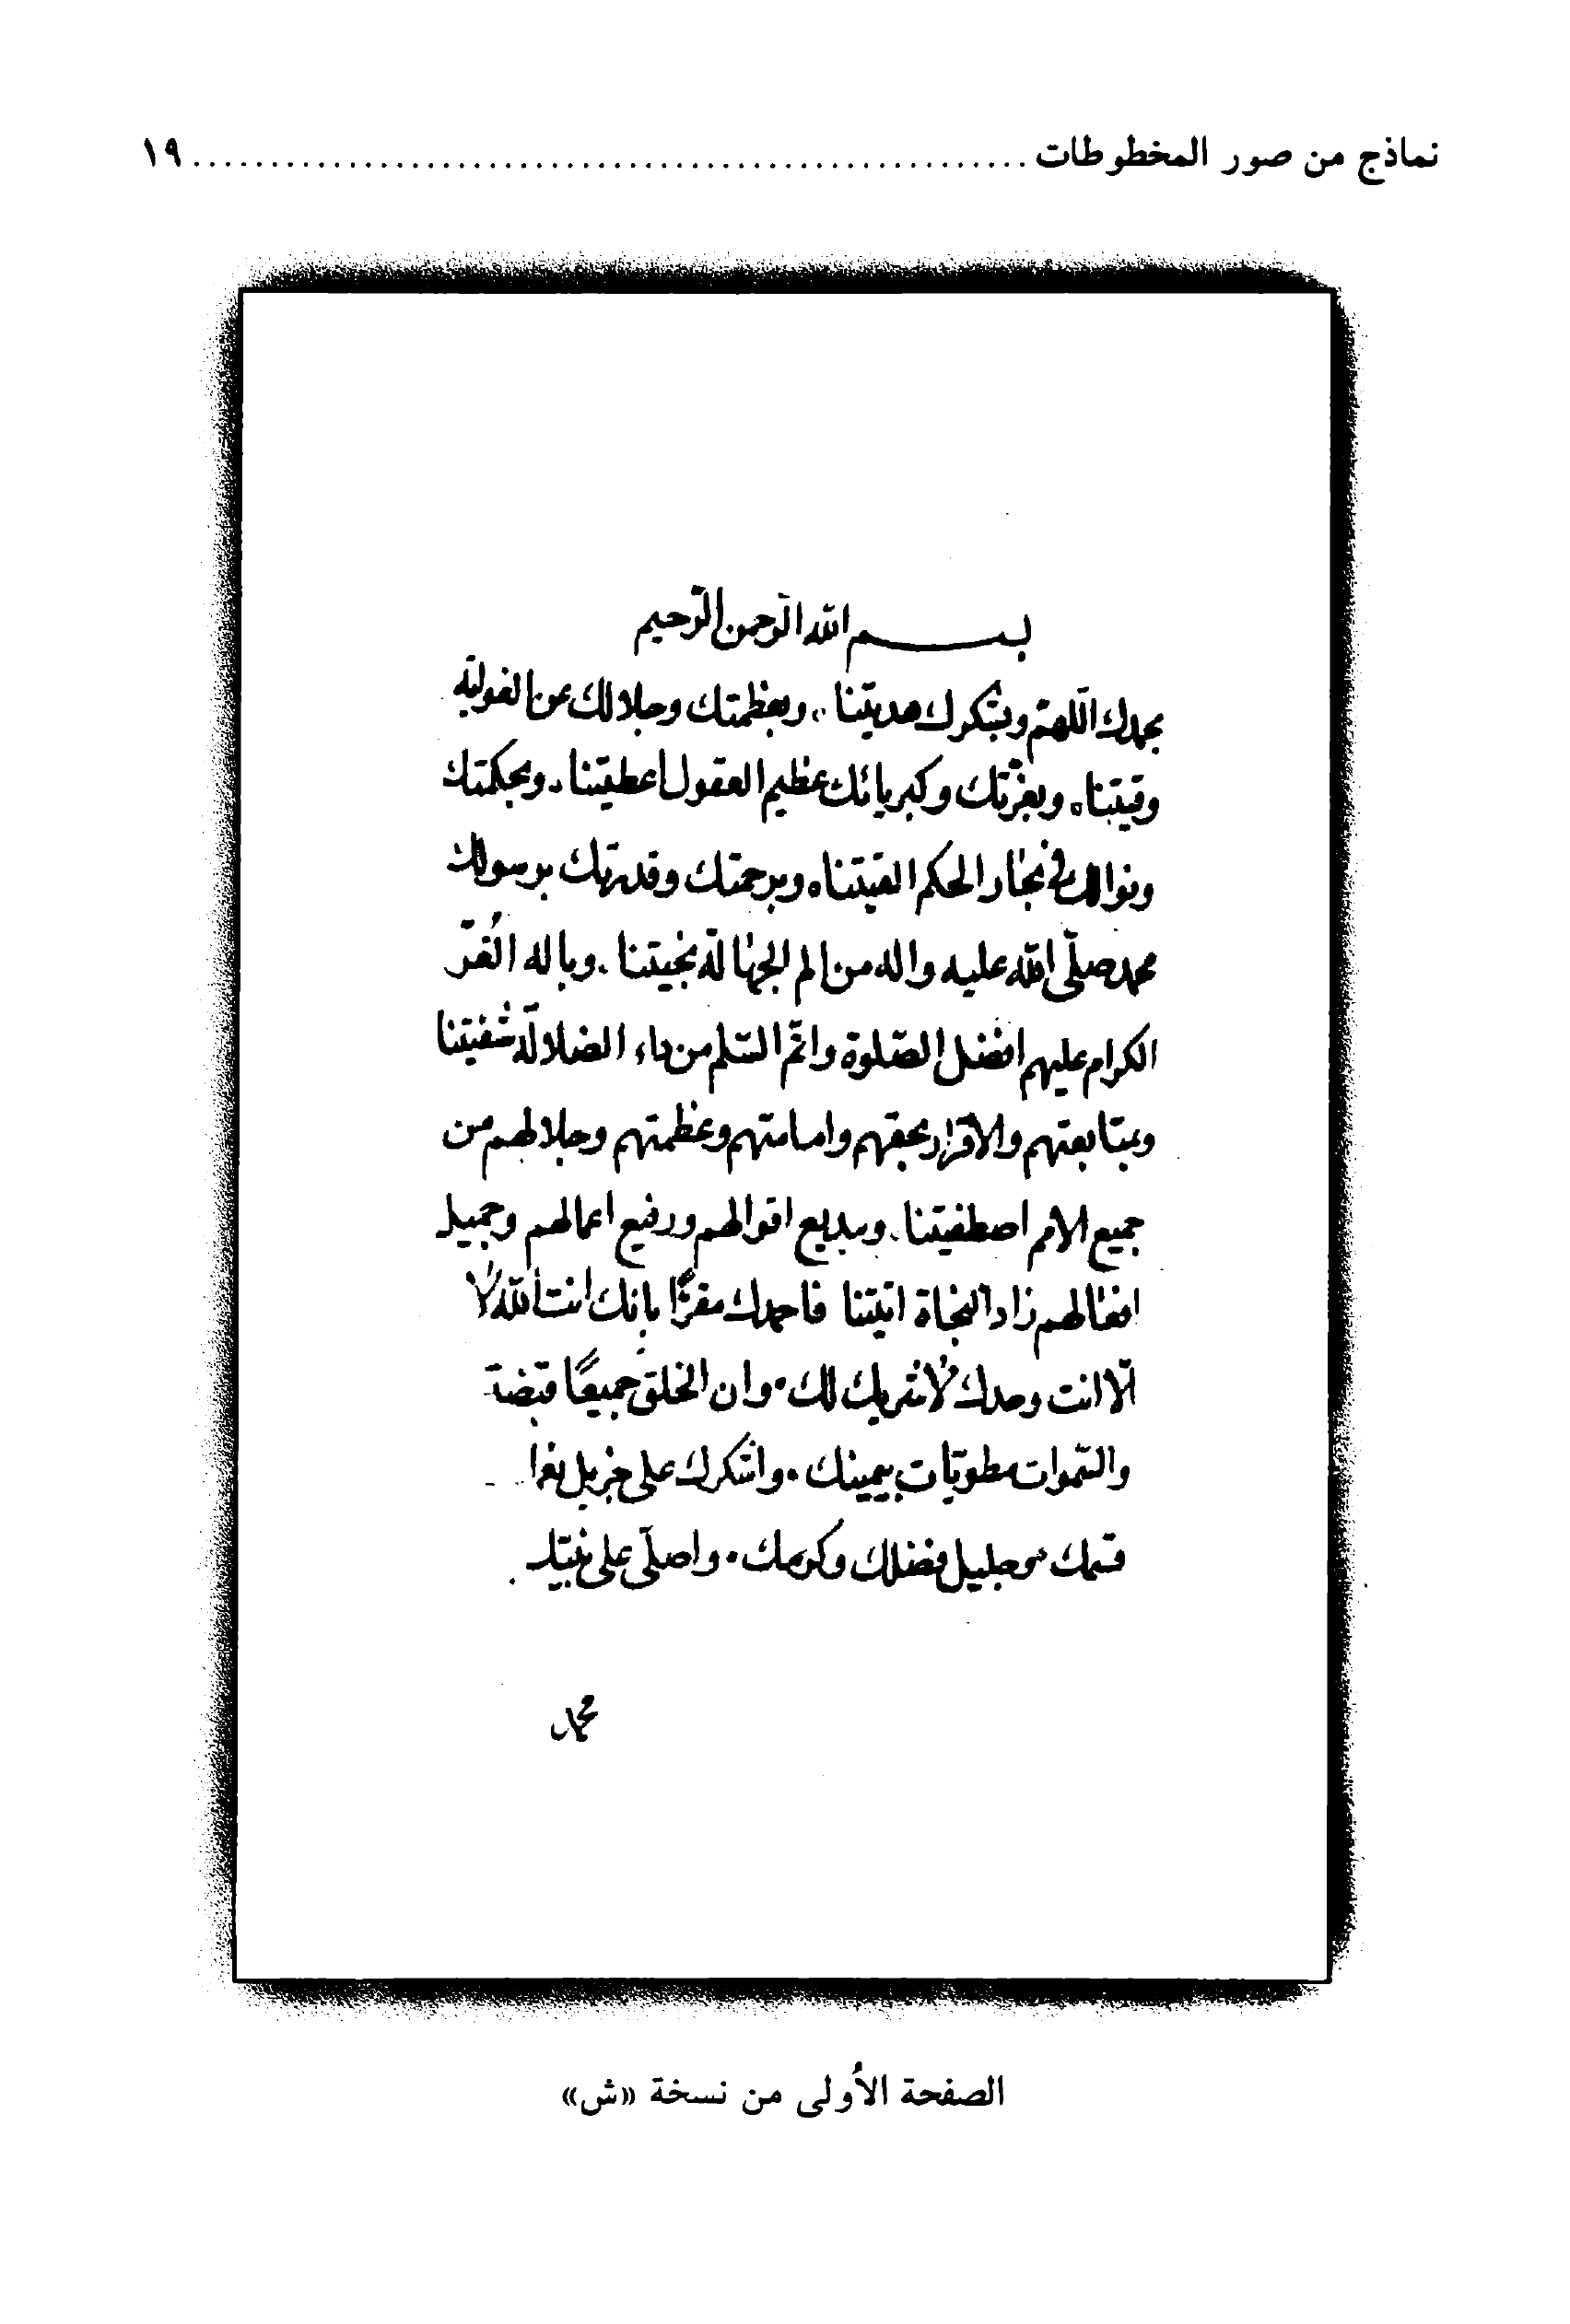 نماذج من صور المخطوطات ................................................ ١٩
بسم الله الرحمن الرحيم
بحمدك اللهم وبشكرك هديتنا، وبعظمتك وجلالك عن الغواية
وقيتنا، وبعزتك وكبريائك عظيم العقول اعطيتنا، وبحكمتك
ونوالك في بحار الحكم القيتنا، وبرحمتك وقدرتك برسولك
محمد صلى الله عليه واله من الم الجهالة نجيتنا، وباله الغر
الكرام عليهم افضل الصلوة واتم السلم من داء الضلالة شفيتنا
وبمتابعتهم والاقرار بحقهم وامامتهم وعظمتهم وجلالهم من
جميع الامم اصطفيتنا، وببديع اقوالهم ورفيع اعمالهم وجميل
افعالهم زاد النجاة اتيتنا فاحمدك مقرًا بانك انت الله لا
الا انت وحدك لا شريك لك، وان الخلق جميعًا قبضة
والسموات مطويات بيمينك، واشكرك على جزيل نعما
وجليل فضلك وكرمك، واصلي على نبيك
محمد
الصفحة الأولى من نسخة «ش»